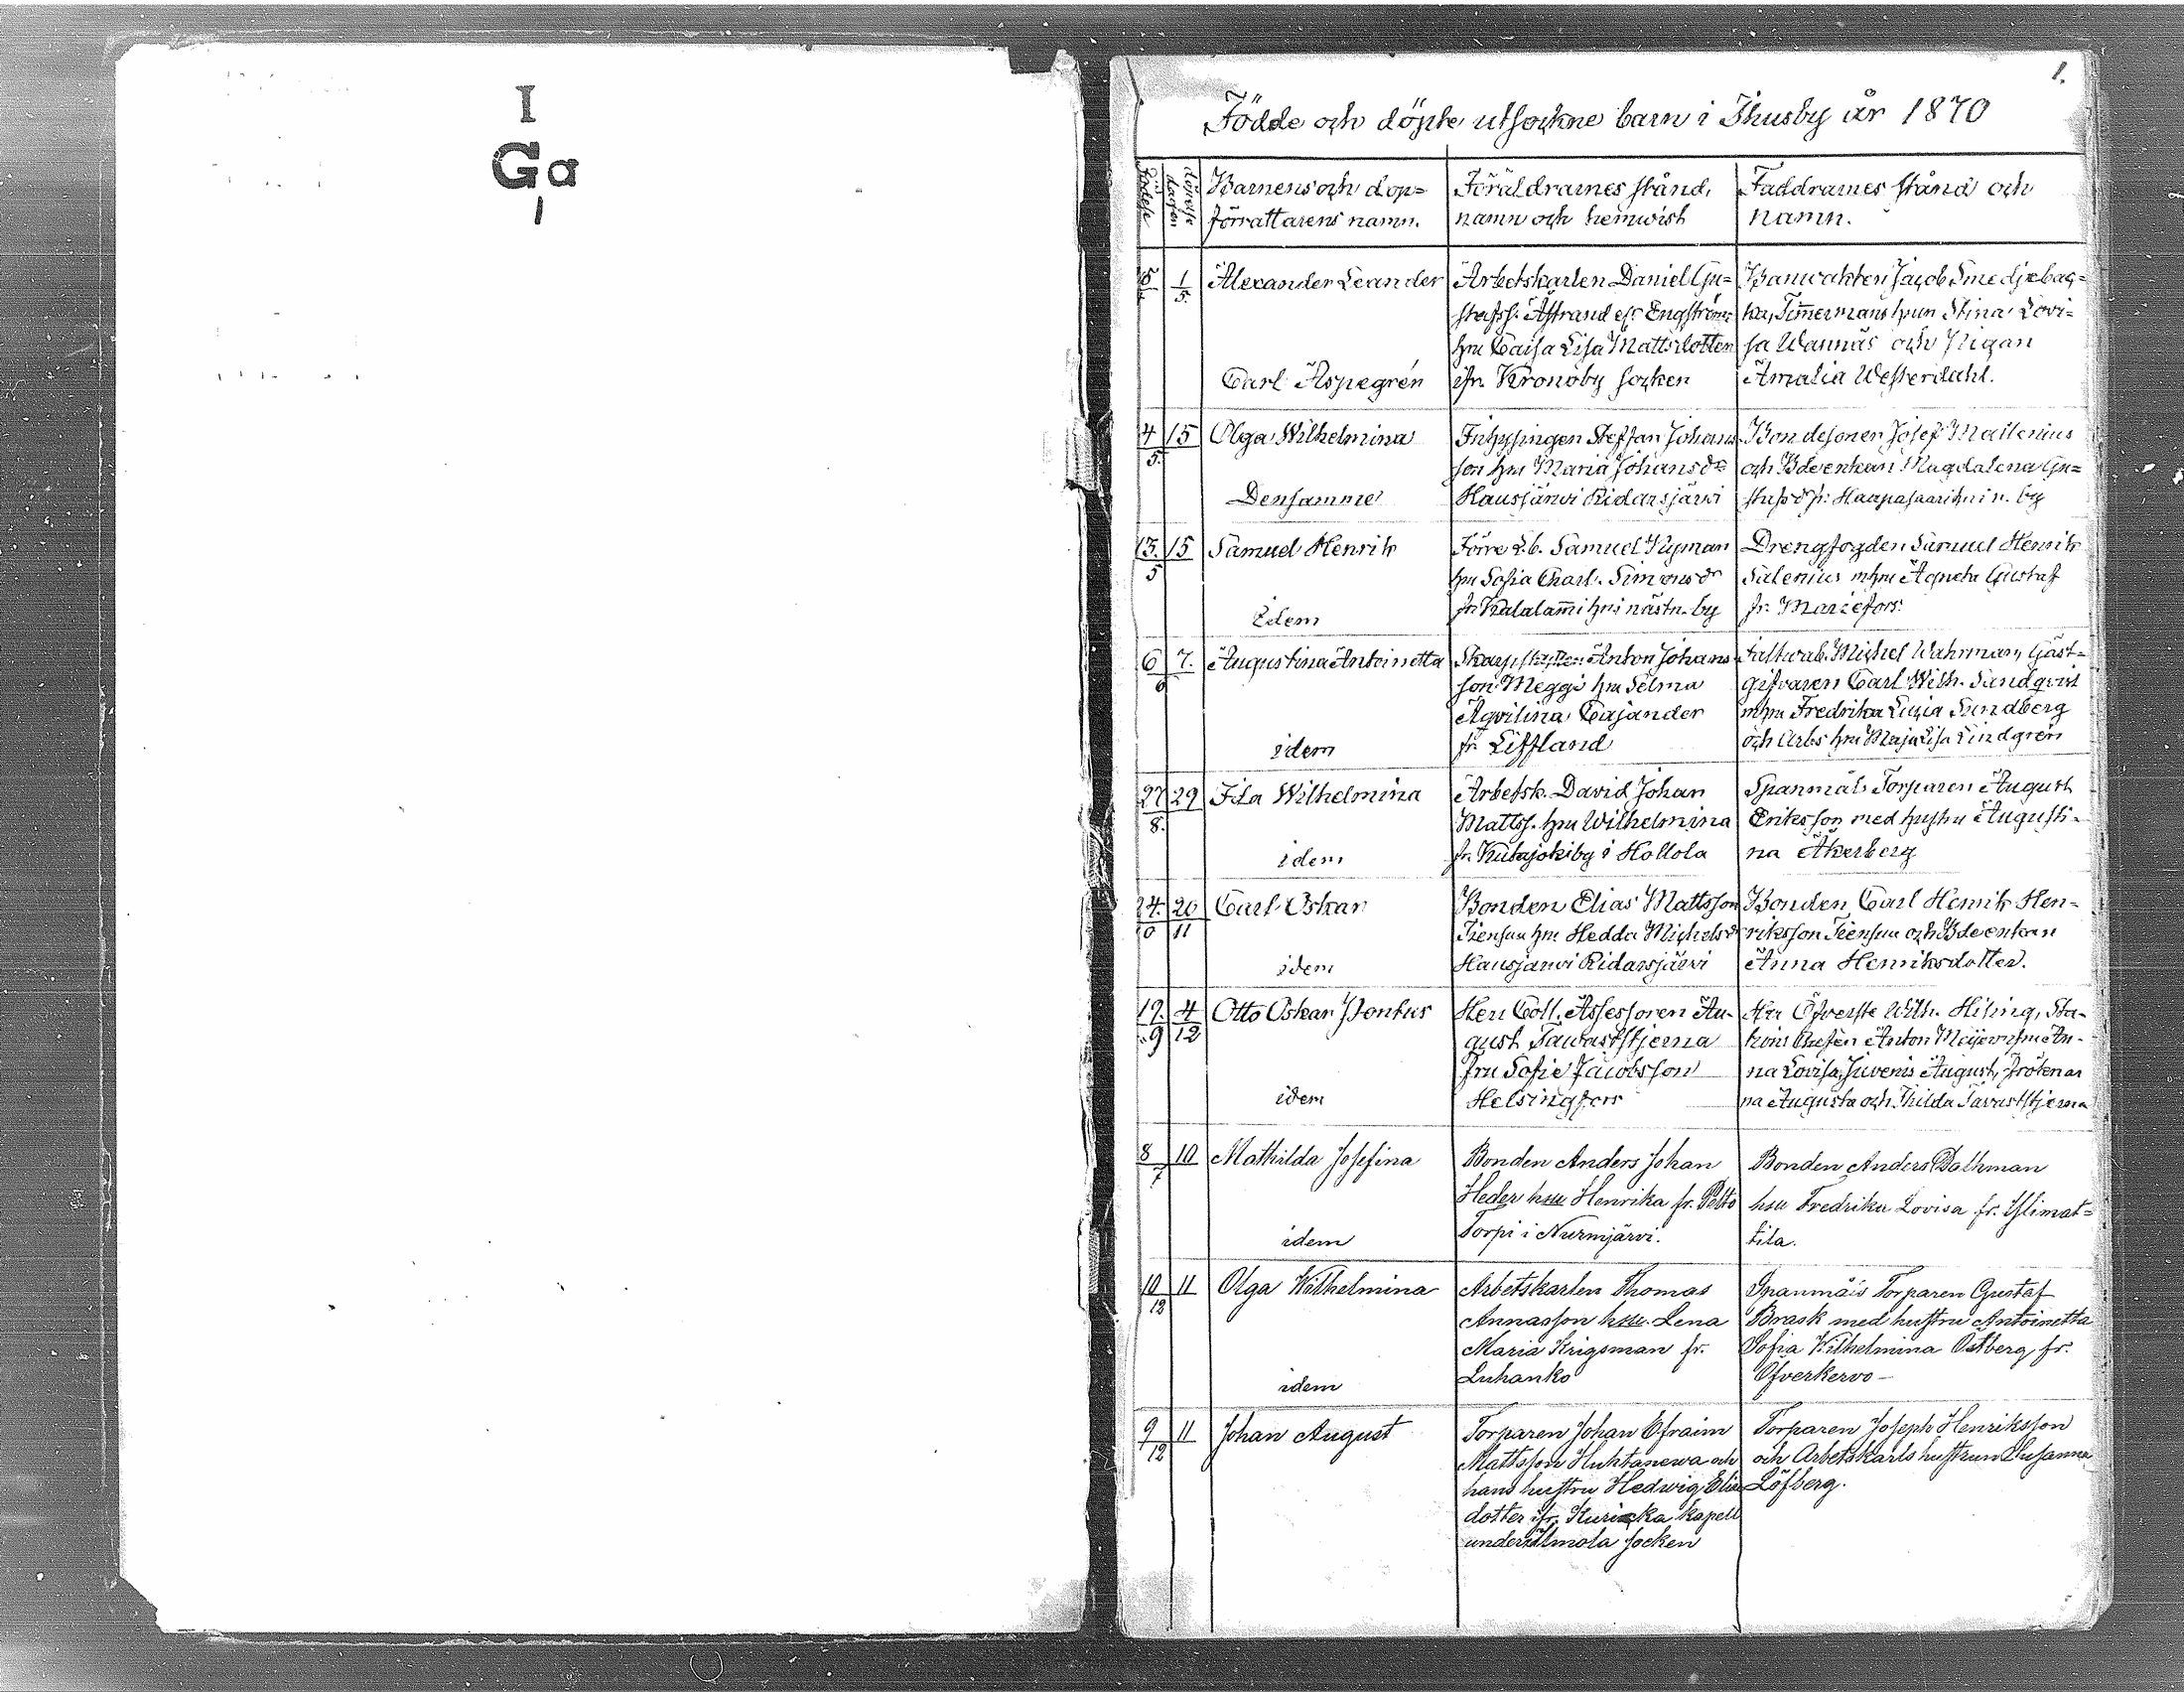 I
Ga
1
1.
Födde och döpte utsockne barn i Thusby år 1870
Födelse
döpelse
dagen
Barnens och dop=
förrattarens namn.
Föräldrarnes stånd,
namn och hemwist
Faddrarnes stånd och
namn.
5 1/5. Alexander Leander
Carl Aspegrén
Arbetskarlen Daniel Gu=
stafss. Åstrand el. Engström
hru Caisa Lisa Mattsdotter
ifr. Kronoby socken
Banwakten Jacob Smedjebac=
ka, Timmermans hrun Stina Lovi=
sa Wannäs och Pigan
Amalia Westerdahl.
4/5. 15 Olga Wilhelmina
Densamme
Inhysingen Steffan Johans
son hru Maria Johansdr
Hausjärvi Ridasjärvi
Bondesonen Josef Mattenius
och Bdeenkan Magdalena Gu=
stafsdr fr. by
13./5 15 Samuel Henrik
idem
Förre L.b. Samuel Nyman
hru Sofia Charl. Simonsdr
fr. Kalalammi hri nästn. by
Drengfogden Samuel Henrik
Salenius mhru Agneta Gustaf
fr. Mariefors.
6 7./6 Augustina Antoinetta
idem
Skarpskytten Anton Johans
son Meggi hru Selma
Aqvilina Cajander
fr. Liffland
Michel Wahrman, Gäst=
gifvaren Carl Wilh. Sandqvist
mhru Fredrika Lucia Sundberg
och Arbs hru Maja Lisa Lindgrén
27/8. 29 Ida Wilhelmina
idem
Arbetsk. David Johan
Mattss. hru Wilhelmina
fr. Kutajokiby i Hollola
Spanmåls Torparen August
Eriksson med hustru Augusti=
na Åkerberg
24./10 20/11 Carl Oskar
idem
Bonden Elias Mattsson
Tiensuu hru Hedda Michelsdr
Hausjarvi Ridasjärvi
Bonden Carl Henrik Hen=
riksson Tiensuu och Bdeenkan
Anna Henriksdotter.
19./9 4/12 Otto Oskar Pontus
idem
Herr Coll. Assessoren Au=
gust Tawaststjerna
fru Sofie Jacobsson
Helsingfors
Herr Öfverste Wilh. Hising, Sta=
tions Anton An=
na Lovisa, Juvenis August, fröknar
na Augusta och Thilda Tavaststjerna
8/7 10 Mathilda Josefina
idem
Bonden Anders Johan
Heder hsu Henrika fr.
Torpi i Nurmjärvi.
Bonden Anders Dalhman
hsu Fredrika Lovisa fr. Ylimat=
tila.
10/12 11 Olga Wilhelmina
idem
Arbetskarlen Thomas
Annasson hsu. Lena
Maria Krigsman fr.
Luhanko
Spanmåls Torparen Gustaf
Brask med hustru Antoinetta
Sofia Wilhelmina Östberg fr.
Öfverkervo —
9/12 11 Johan August
Torparen Johan Efraim
Mattsson Huhtanewa och
hans hustru Hedwig Elia
dotter ifr. Kuricka kapell
under Ilmola socken
Torparen Joseph Henriksson
och Arbetskarls hustrun Susanna
Löfberg.